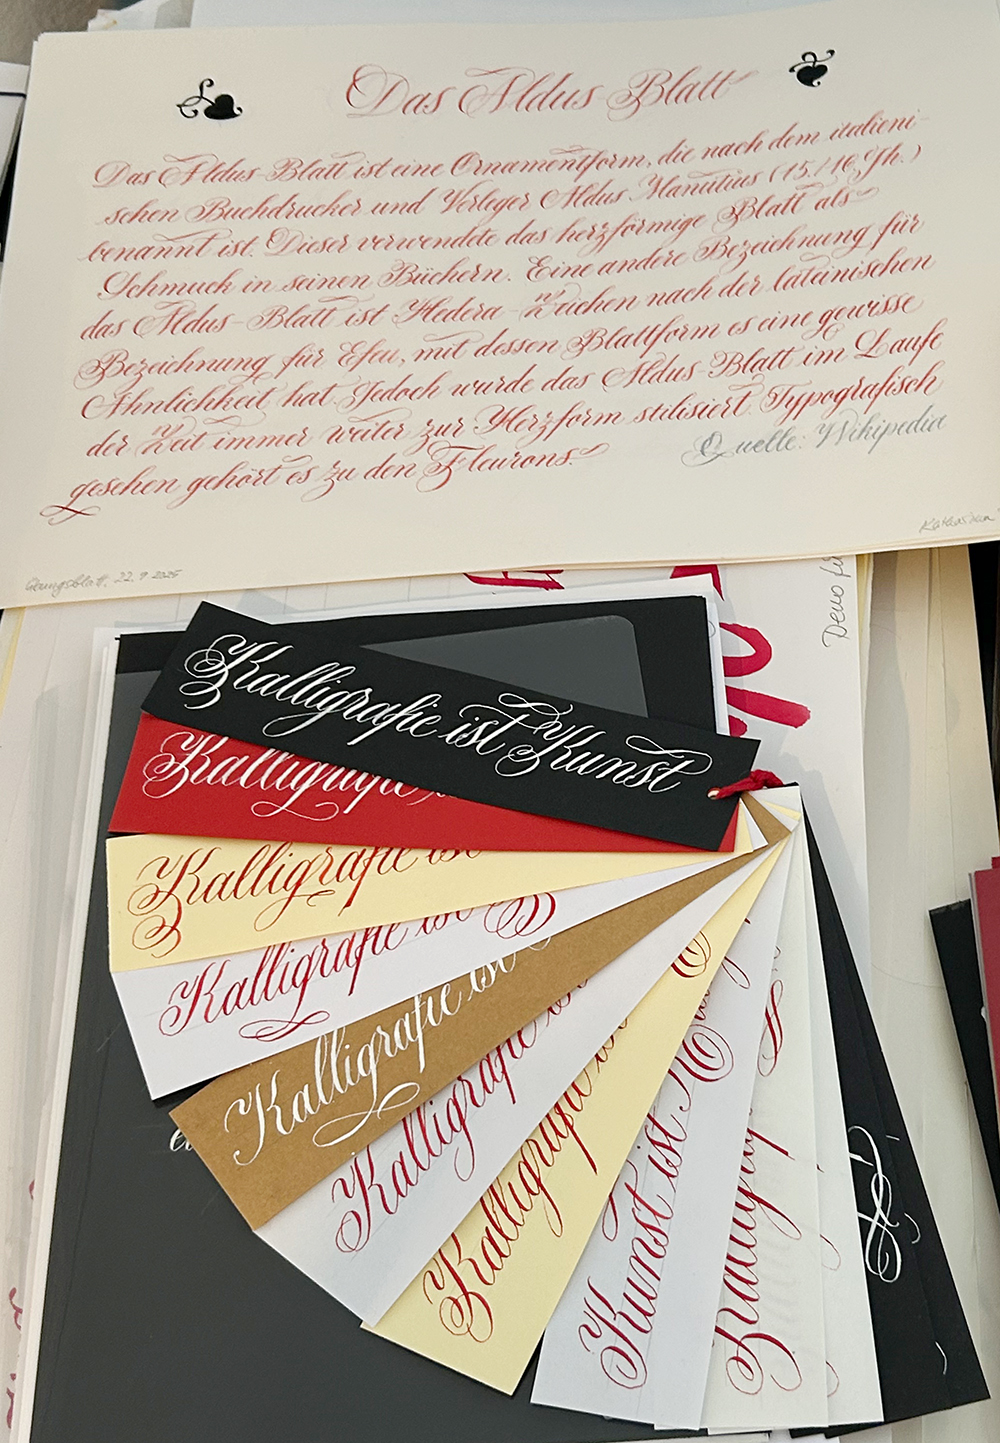 Das Aldus-Blatt
Das Aldus-Blatt ist eine Ornamentform, die nach dem italieni-
schen Buchdrucker und Verleger Aldus Manutius (15./16. Jh.)
benannt ist. Dieser verwendete das herzförmige Blatt als
Schmuck in seinen Büchern. Eine andere Bezeichnung für
das Aldus-Blatt ist Hedera-Zeichen nach der lateinischen
Bezeichnung für Efeu, mit dessen Blattform es eine gewisse
Ähnlichkeit hat. Jedoch wurde das Aldus-Blatt im Laufe
der Zeit immer weiter zur Herzform stilisiert. Typografisch
gesehen gehört es zu den Fleurons.
Quelle: Wikipedia
Übungsblatt, 22.9.2025
Demo
Kalligrafie ist Kunst
Kalligrafie
Kalligrafie ist
Kalligrafie ist
Kalligrafie ist
Kalligrafie ist
Kalligrafie ist
Kunst ist